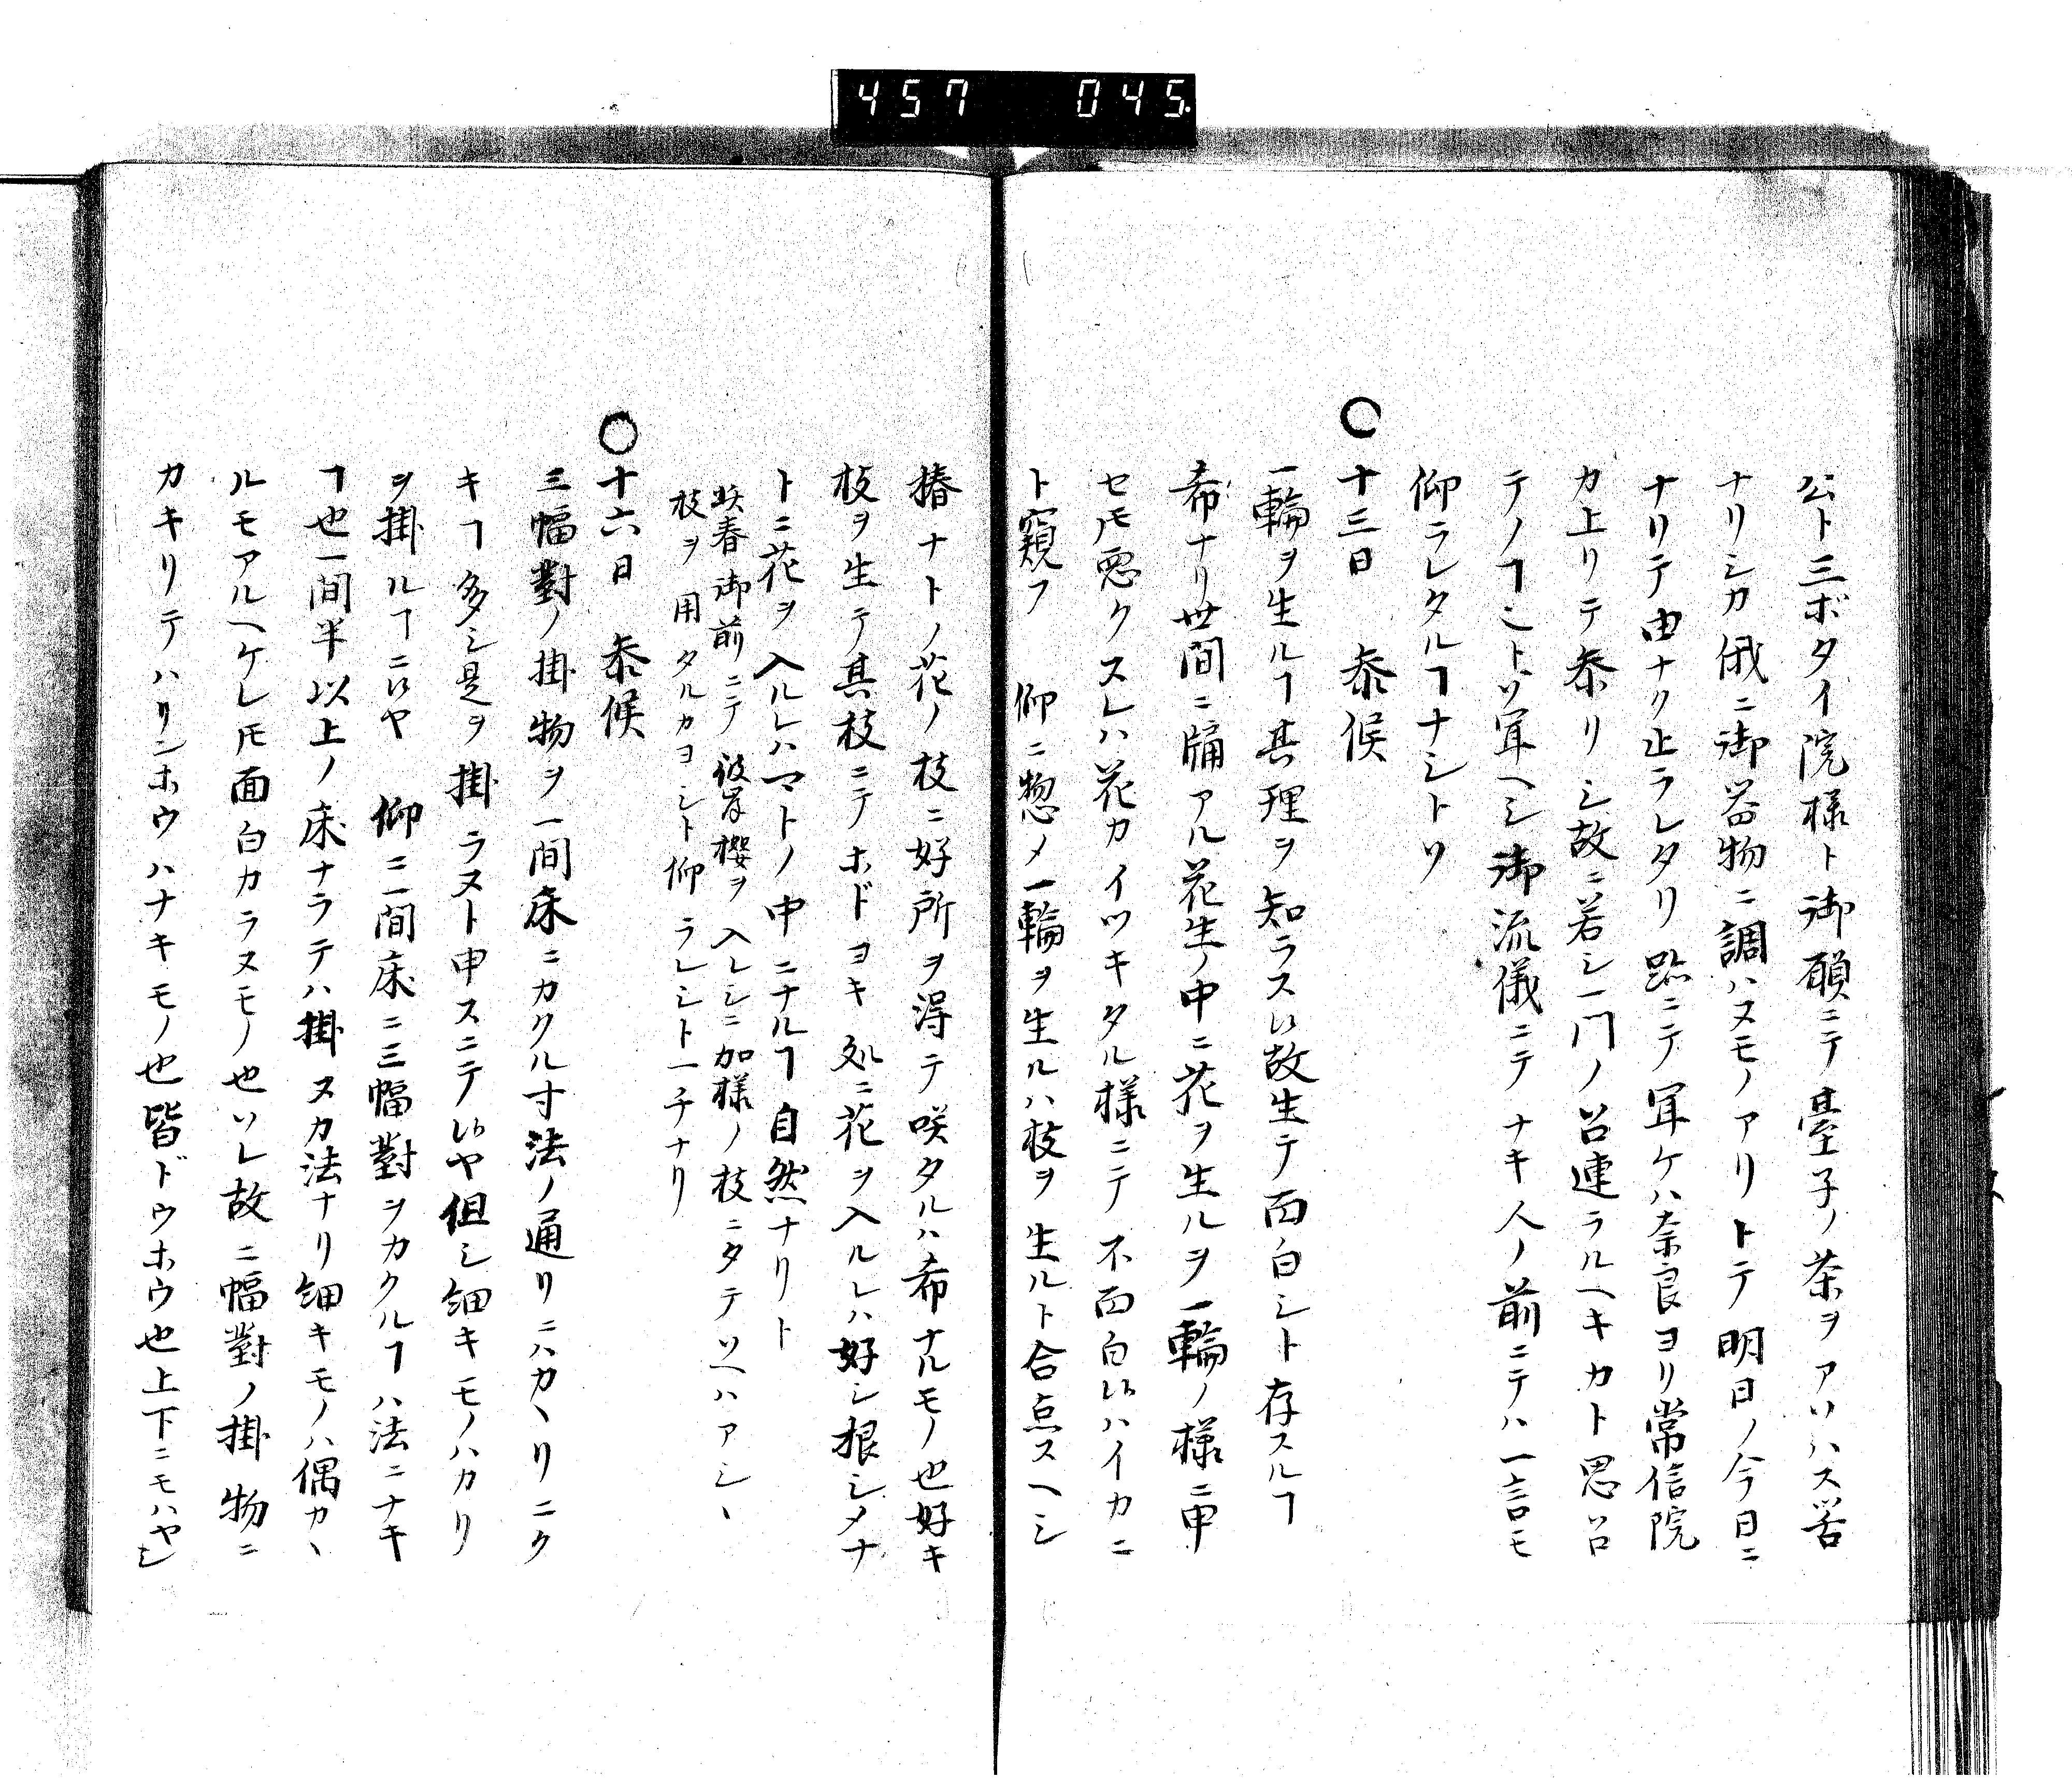 457 045
公ト三ボタイ院様ト御願ニテ臺子ノ茶ヲアソハス筈
ナリシカ俄ニ御器物ニ調ハヌモノアリトテ明日ノ今日ニ
ナリテ由ナク止ラレタリ跡ニテ耳ケハ奈良ヨリ常信院
カ上リテ参リシ故ニ若シ一門ノ召連ラルヘキカト思召
テノヿヿトソ耳ヘシ御流儀ニテナキ人ノ前ニテハ一言モ
仰ラレタルヿナシトソ
〇十三日 参候
一輪ヲ生ルヿ其理ヲ知ラス候故生テ面白シト存スルヿ
希ナリ世間ニ牗アル花生ノ中ニ花ヲ生ルヲ一輪ノ様ニ申
セ𪜈悪クスレハ花カイツキタル様ニテ不面白候ハイカニ
ト窺フ 仰ニ惣〆一輪ヲ生ルハ枝ヲ生ルト合点スヘシ
椿ナトノ花ノ枝ニ好所ヲ得テ咲タルハ希ナルモノ也好キ
枝ヲ生テ其枝ニテホドヨキ処ニ花ヲ入ルレハ好シ根シメナ
トニ花ヲ入ルレハマトノ中ニナルヿ自然ナリト
此春御前ニテ彼岸櫻ヲ入レシニ加様ノ枝ニタテソヘハアシヽ
枝ヲ用タルカヨシト仰ラレシト一チナリ
〇十六日 参候
三幅對ノ掛物ヲ一間床ニカクル寸法ノ通リニハカヽリニク
キヿ多シ是ヲ掛ラヌト申スニテ候ヤ但シ細キモノハカリ
ヲ掛ルヿニ候ヤ 仰ニ一間床ニ三幅對ヲカクルヿハ法ニナキ
ヿ也一間半以上ノ床ナラテハ掛ヌカ法ナリ細キモノハ偶カヽ
ルモアルヘケレ𪜈面白カラヌモノ也ソレ故ニ幅對ノ掛物ニ
カキリテハリンホウハナキモノ也皆ドウホウ也上下ニモハヤシ